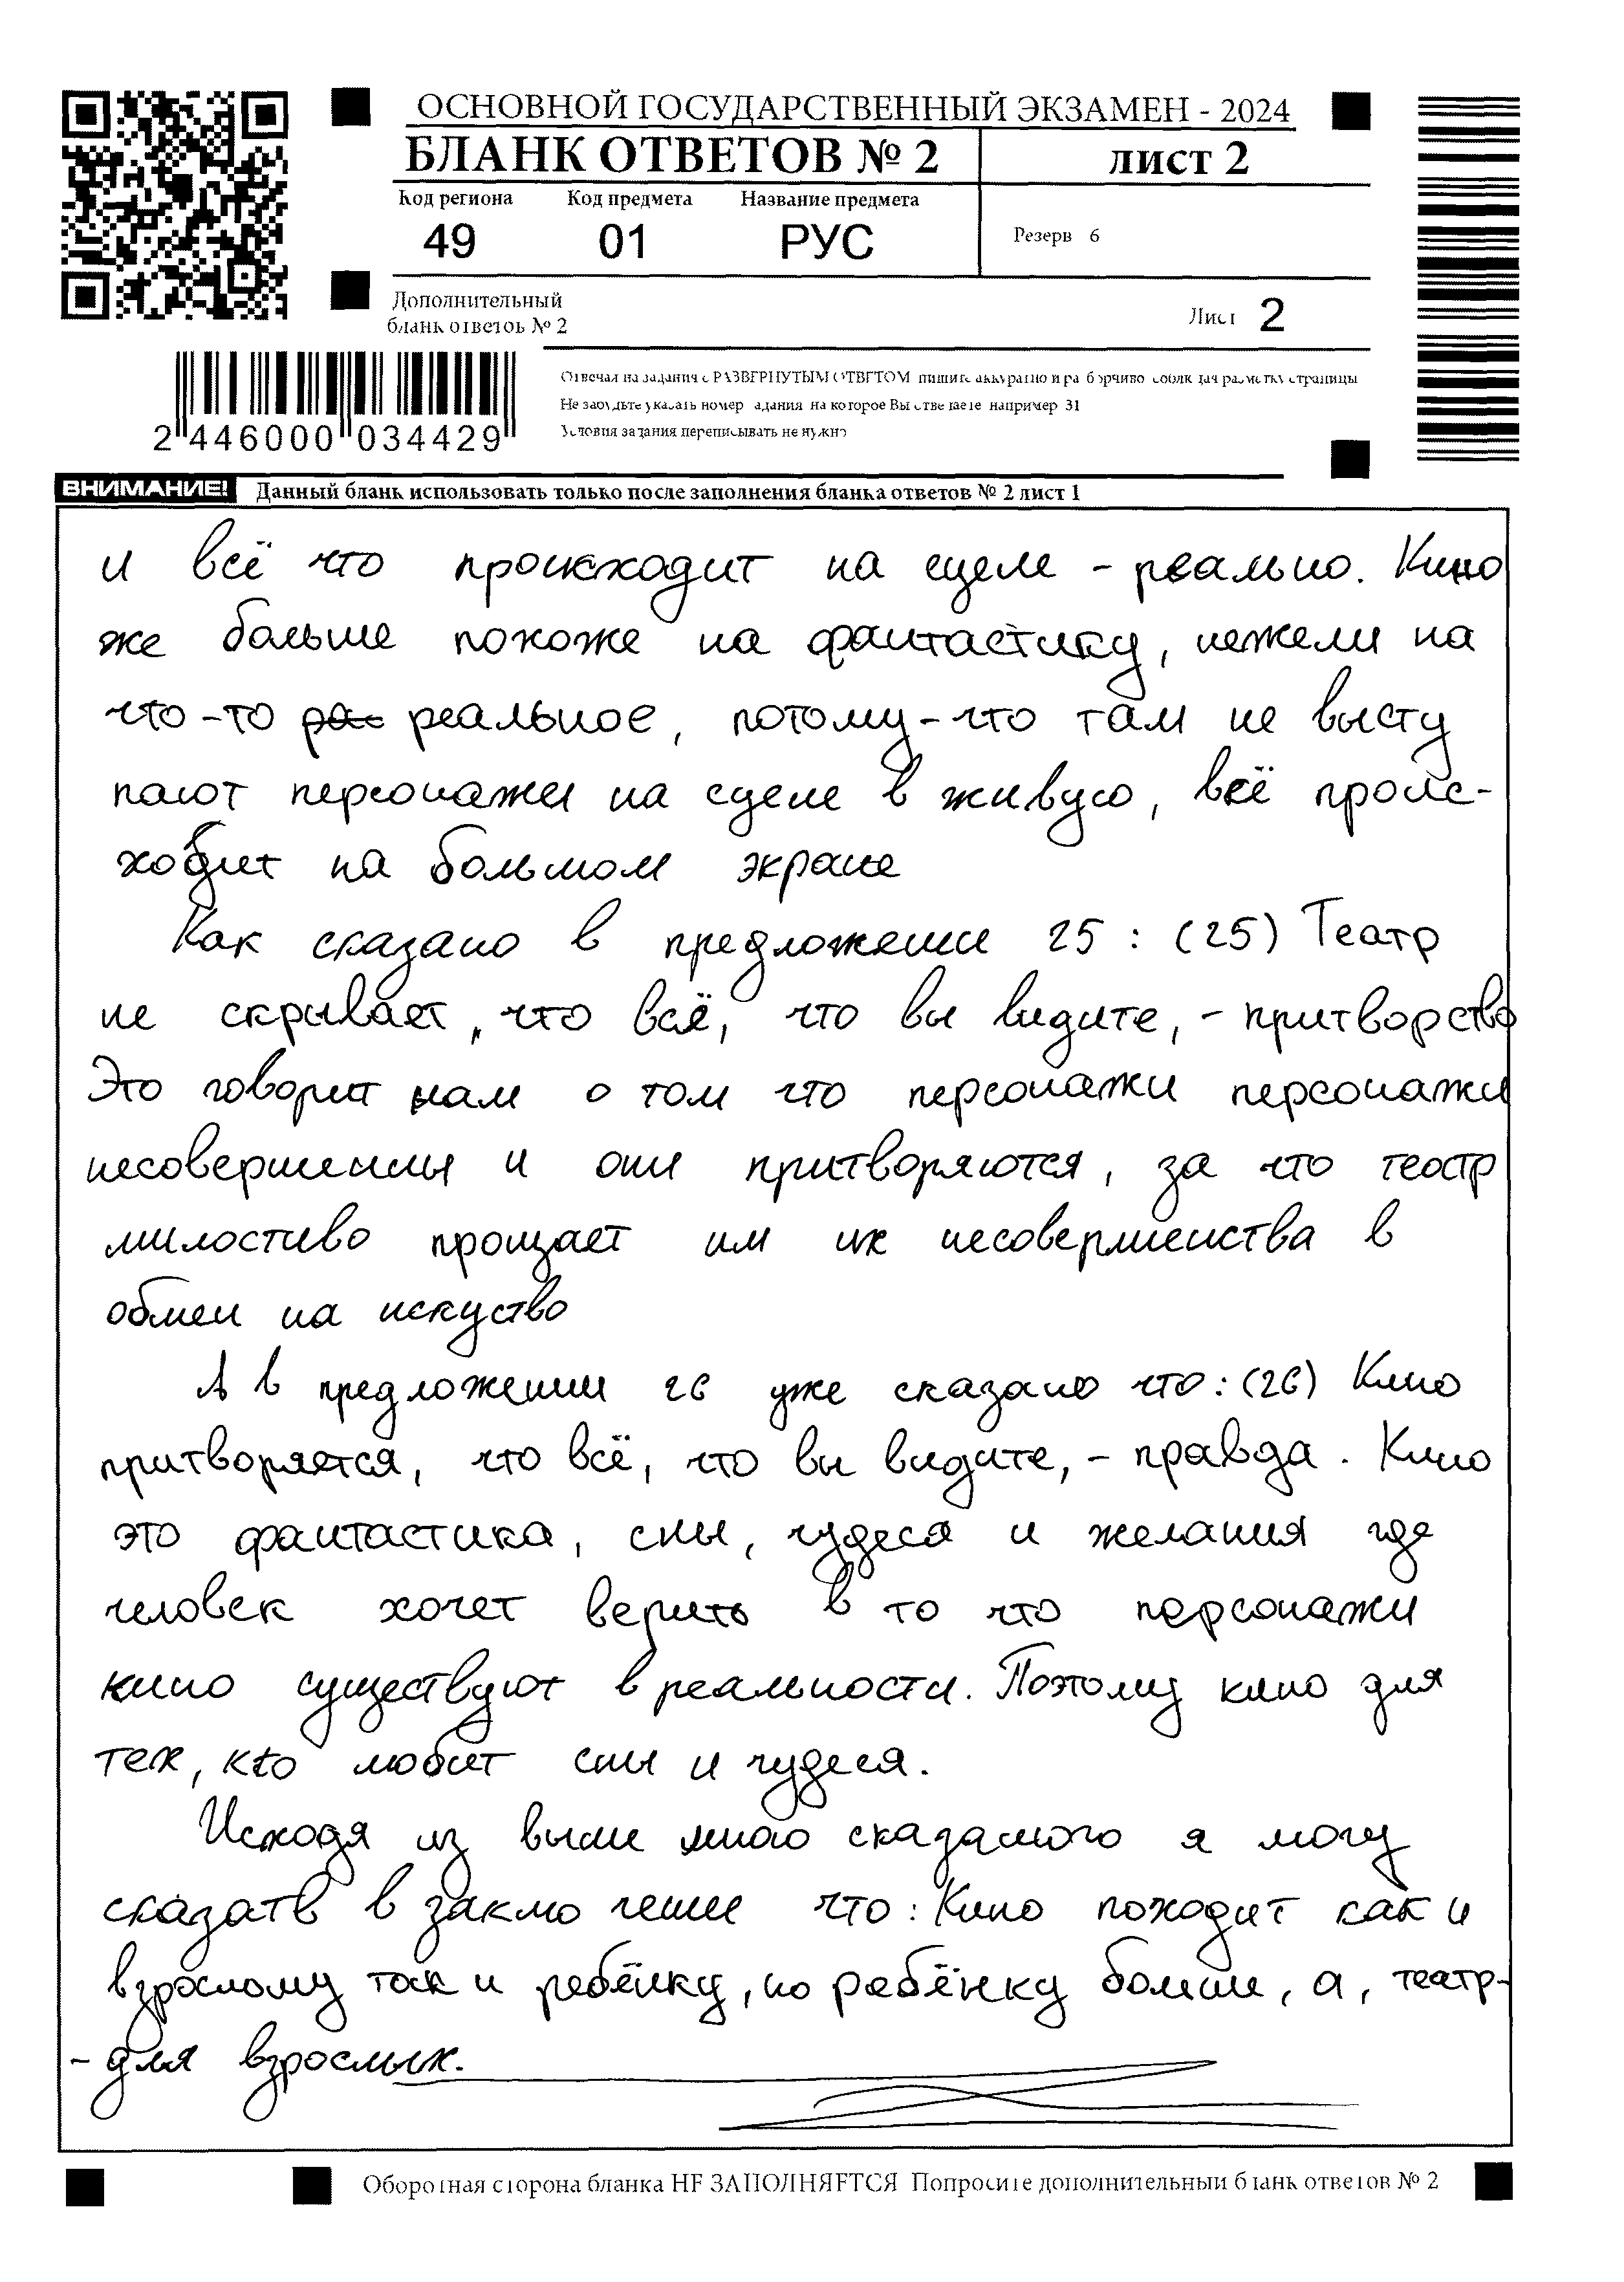 ОСНОВНОЙ ГОСУДАРСТВЕННЫЙ ЭКЗАМЕН - 2024
БЛАНК ОТВЕТОВ № 2
лист 2
Код региона Код предмета Название предмета
49 01 РУС
Резерв 6
Дополнительный
бланк ответов № 2
Лист 2
Отвечая на задания с РАЗВЕРНУТЫМ ОТВЕТОМ, пишите аккуратно и разборчиво, соблюдая разметку страницы
Не забудьте указать номер задания, на которое Вы отвечаете, например 31
Условия задания переписывать не нужно
2 446000 034429
ВНИМАНИЕ! Данный бланк использовать только после заполнения бланка ответов № 2 лист 1
и всё что происходит на сцене - реально. Кино
же больше похоже на фантастику, нежели на
что-то реальное, потому-что там не высту
пают персонажи на сцене в живую, всё проис-
ходит на большом экране
Как сказано в предложении 25 : (25) Театр
не скрывает, что всё, что вы видите, - притворство
Это говорит нам о том что персонажи персонажи
несовершенны и они притворяются, за что театр
милостиво прощает им их несовершенства в
обмен на искуство
А в предложении 26 уже сказано что: (26) Кино
притворяется, что всё, что вы видите, - правда. Кино
это фантастика, сны, чудеса и желания где
человек хочет верить в то что персонажи
кино существуют в реальности. Поэтому кино для
тех, кто любит сны и чудеса.
Исходя из выше мною сказаного я могу
сказать в заклю чении что: Кино походит как и
взрослому так и ребёнку, но ребёнку больше, а, театр-
- для взрослых.
Оборотная сторона бланка НЕ ЗАПОЛНЯЕТСЯ Попросите дополнительный бланк ответов № 2